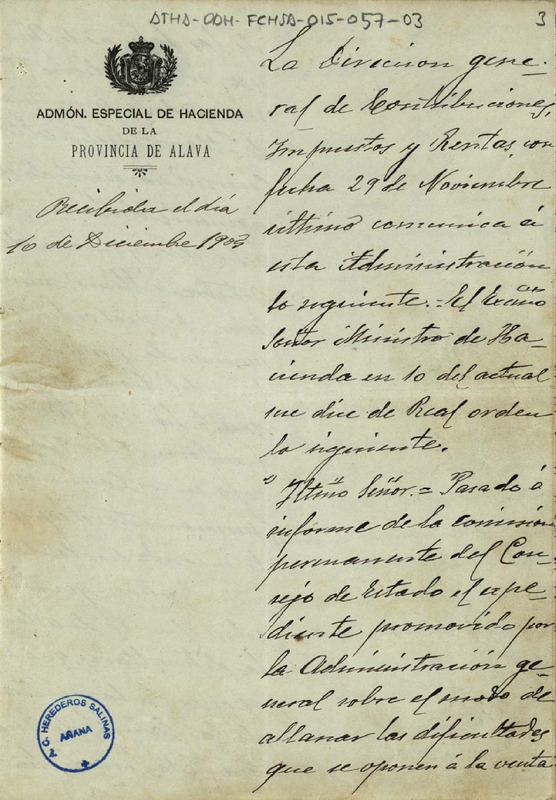 ATHA-DAH-FCHSA-015-057-03
3
ADMÓN. ESPECIAL DE HACIENDA
DE LA
PROVINCIA DE ALAVA
Recibida el día
10 de Diciembre 1903
La Direccion gene-
ral de Contribuciones,
Impuestos y Rentas, con
fecha 29 de Noviembre
último comunica á
esta Administración
lo siguiente.=El Excmo
Señor Ministro de Ha-
cienda en 10 del actual
me dice de Real orden
lo siguiente.
"Iltmo Señor.= Pasado á
informe de la comision
permanente del Con-
sejo de Estado el expe
diente promovido por
la Administración ge-
neral sobre el modo de
allanar las dificultades
que se oponen á la venta
C. HEREDEROS SALINAS
AÑANA